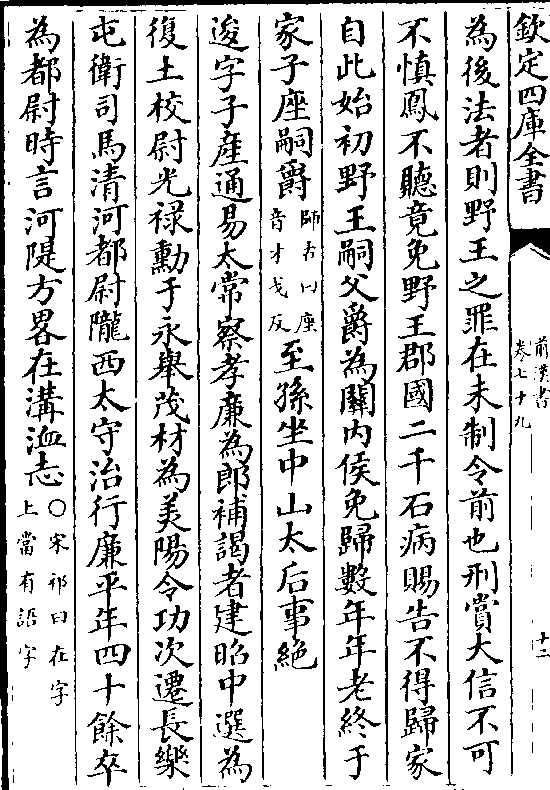 欽定四庫全書
前漢書
卷七十九
十二
為後法者則野王之罪在未制令前也刑賞大信不可
不慎鳳不聽竟免野王郡國二千石病賜告不得歸家
自此始初野王嗣父爵為關内侯免歸數年年老終于
家子座嗣爵
師古曰座
音才戈反
至孫坐中山太后事絶
逡字子産通易太常察孝廉為郎補謁者建昭中選為
復土校尉光禄勲于永舉茂材為美陽令功次遷長樂
屯衛司馬清河都尉隴西太守治行廉平年四十餘卒
為都尉時言河隄方畧在溝洫志
○宋祁曰在字
上當有語字